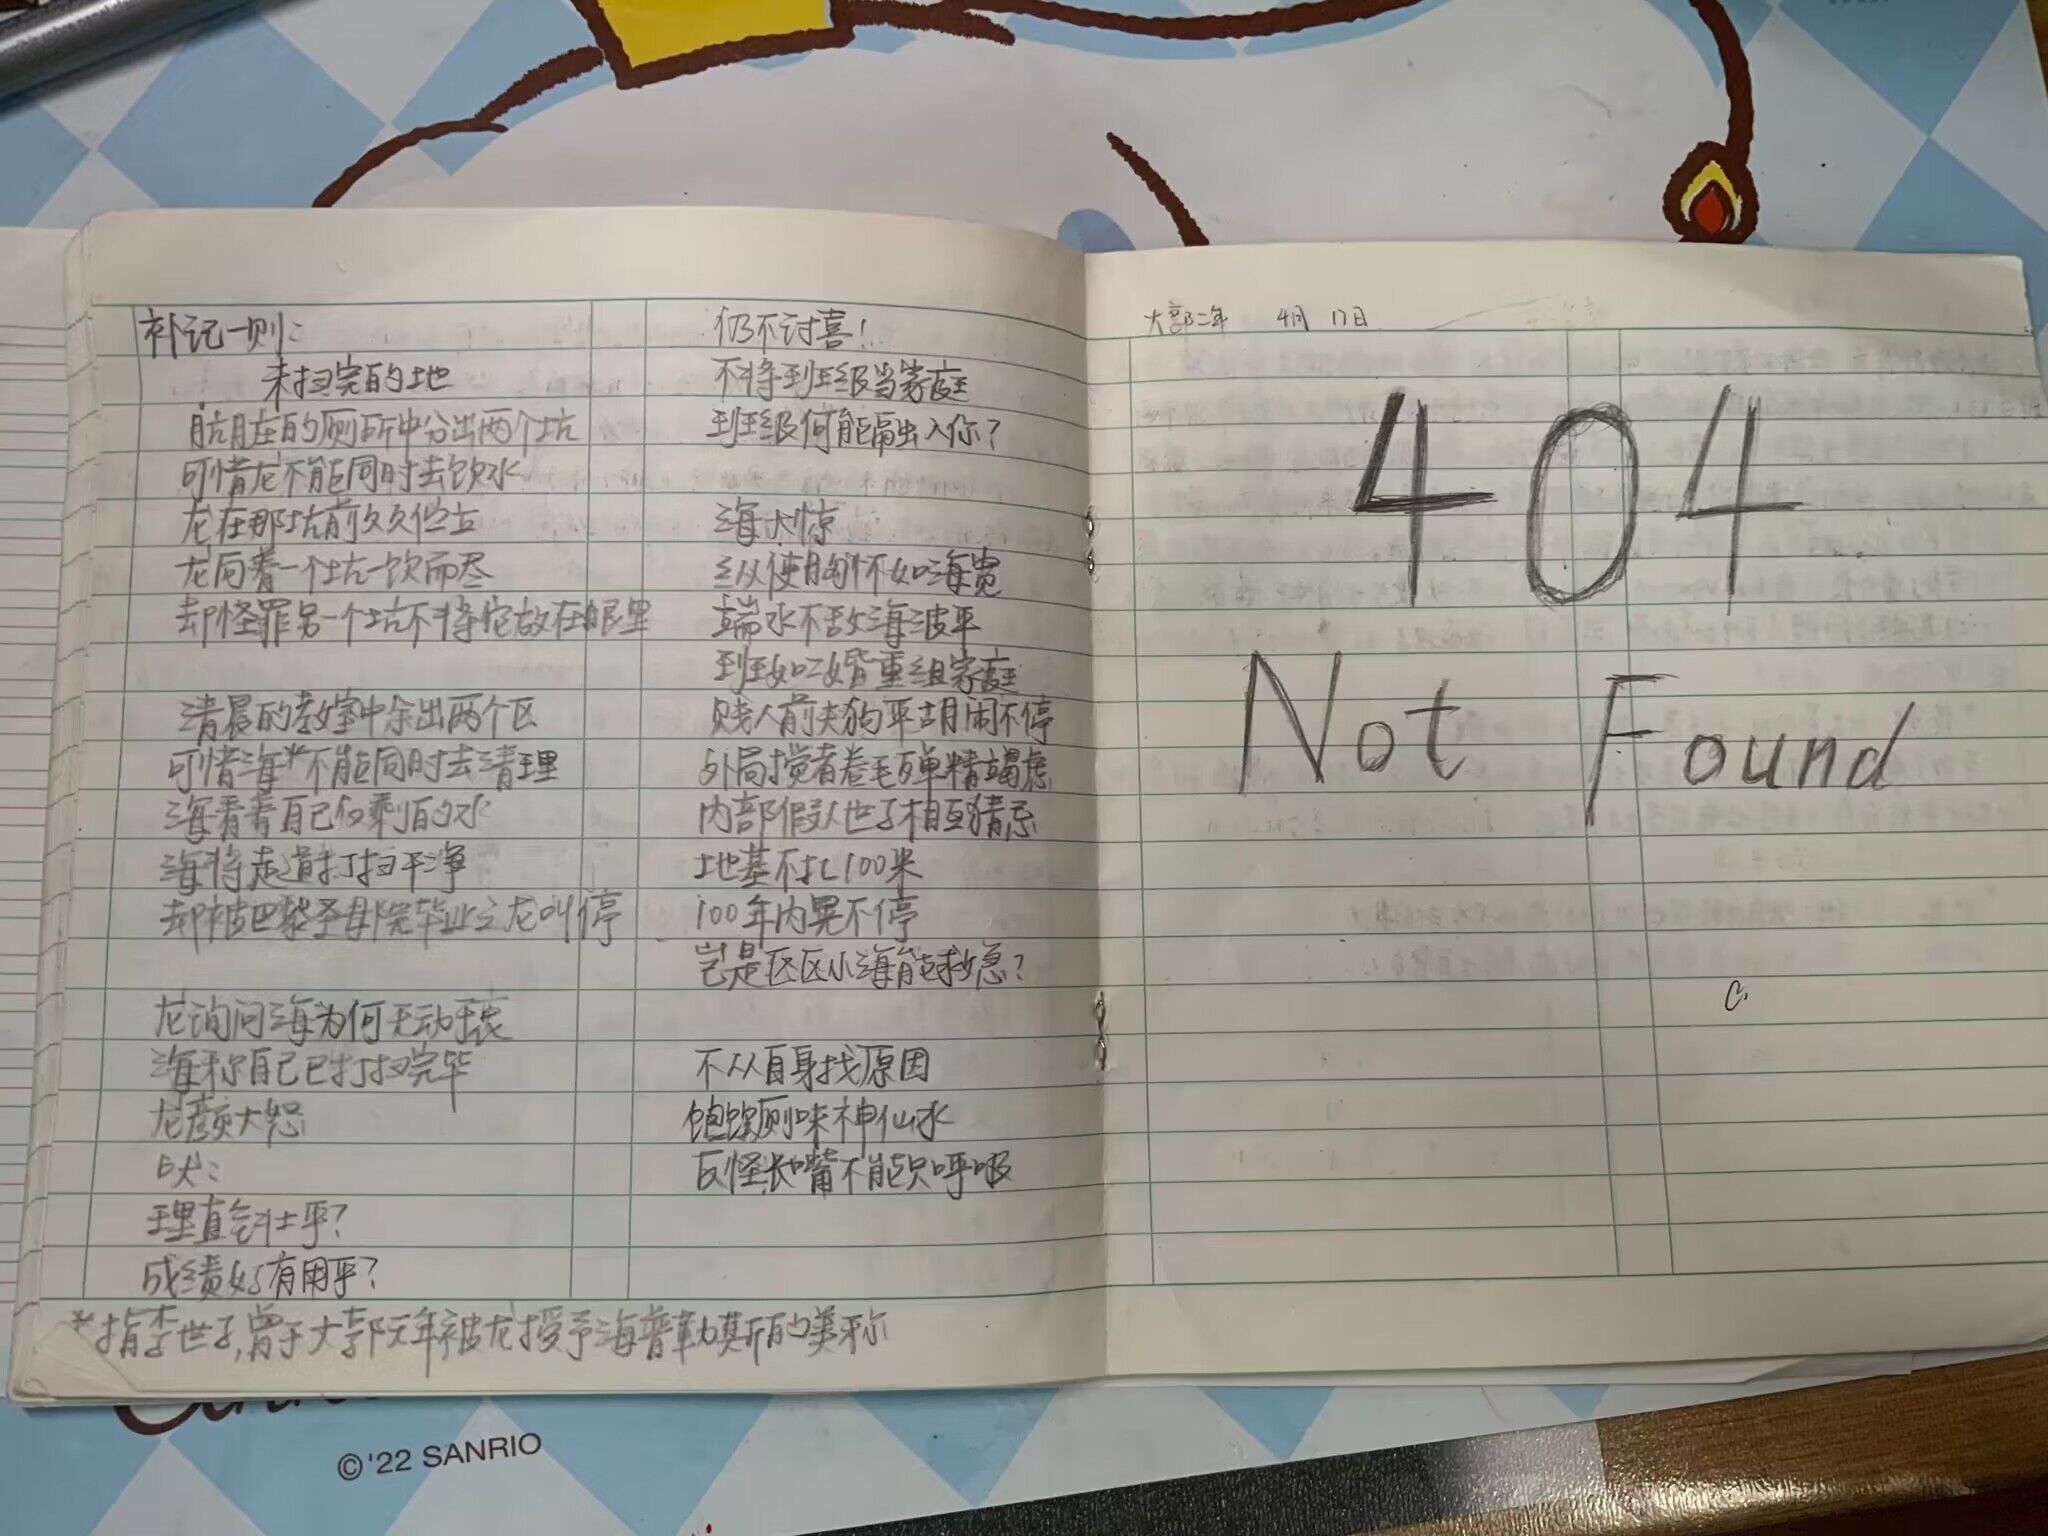 补记一则：
未扫完的地
肮脏的厕所中分出两个坑
可惜龙不能同时去饮水
龙在那坑前久久伫立
龙向着一个坑一饮而尽
却怪罪另一个坑不将它放在眼里
清晨的教室中余出两个区
可惜海*不能同时去清理
海看着自己仅剩的水
海将走道打扫干净
却被巴黎圣母院毕业之龙叫停
龙询问海为何无动于衷
海称自己已打扫完毕
龙颜大怒
吠：
理直气壮乎？
成绩好有用乎？
*指李世子，曾于大郭元年被龙授予海普勒斯的美称
仍不讨喜！
不将班级当家庭
班级何能容入你？
海大惊
纵使胸怀如海宽
端水不敌海波平
班如二婚重组家庭
贱人前夫狗平胡闹不停
外局搅者卷毛殚精竭虑
内部假认世子相互猜忌
地基不扎100米
100年内晃不停
岂是区区小海能救急？
不从自身找原因
饱饮厕味神仙水
反怪长嘴不能只呼吸
大郭二年 4月 17日
404
Not Found
©'22 SANRIO